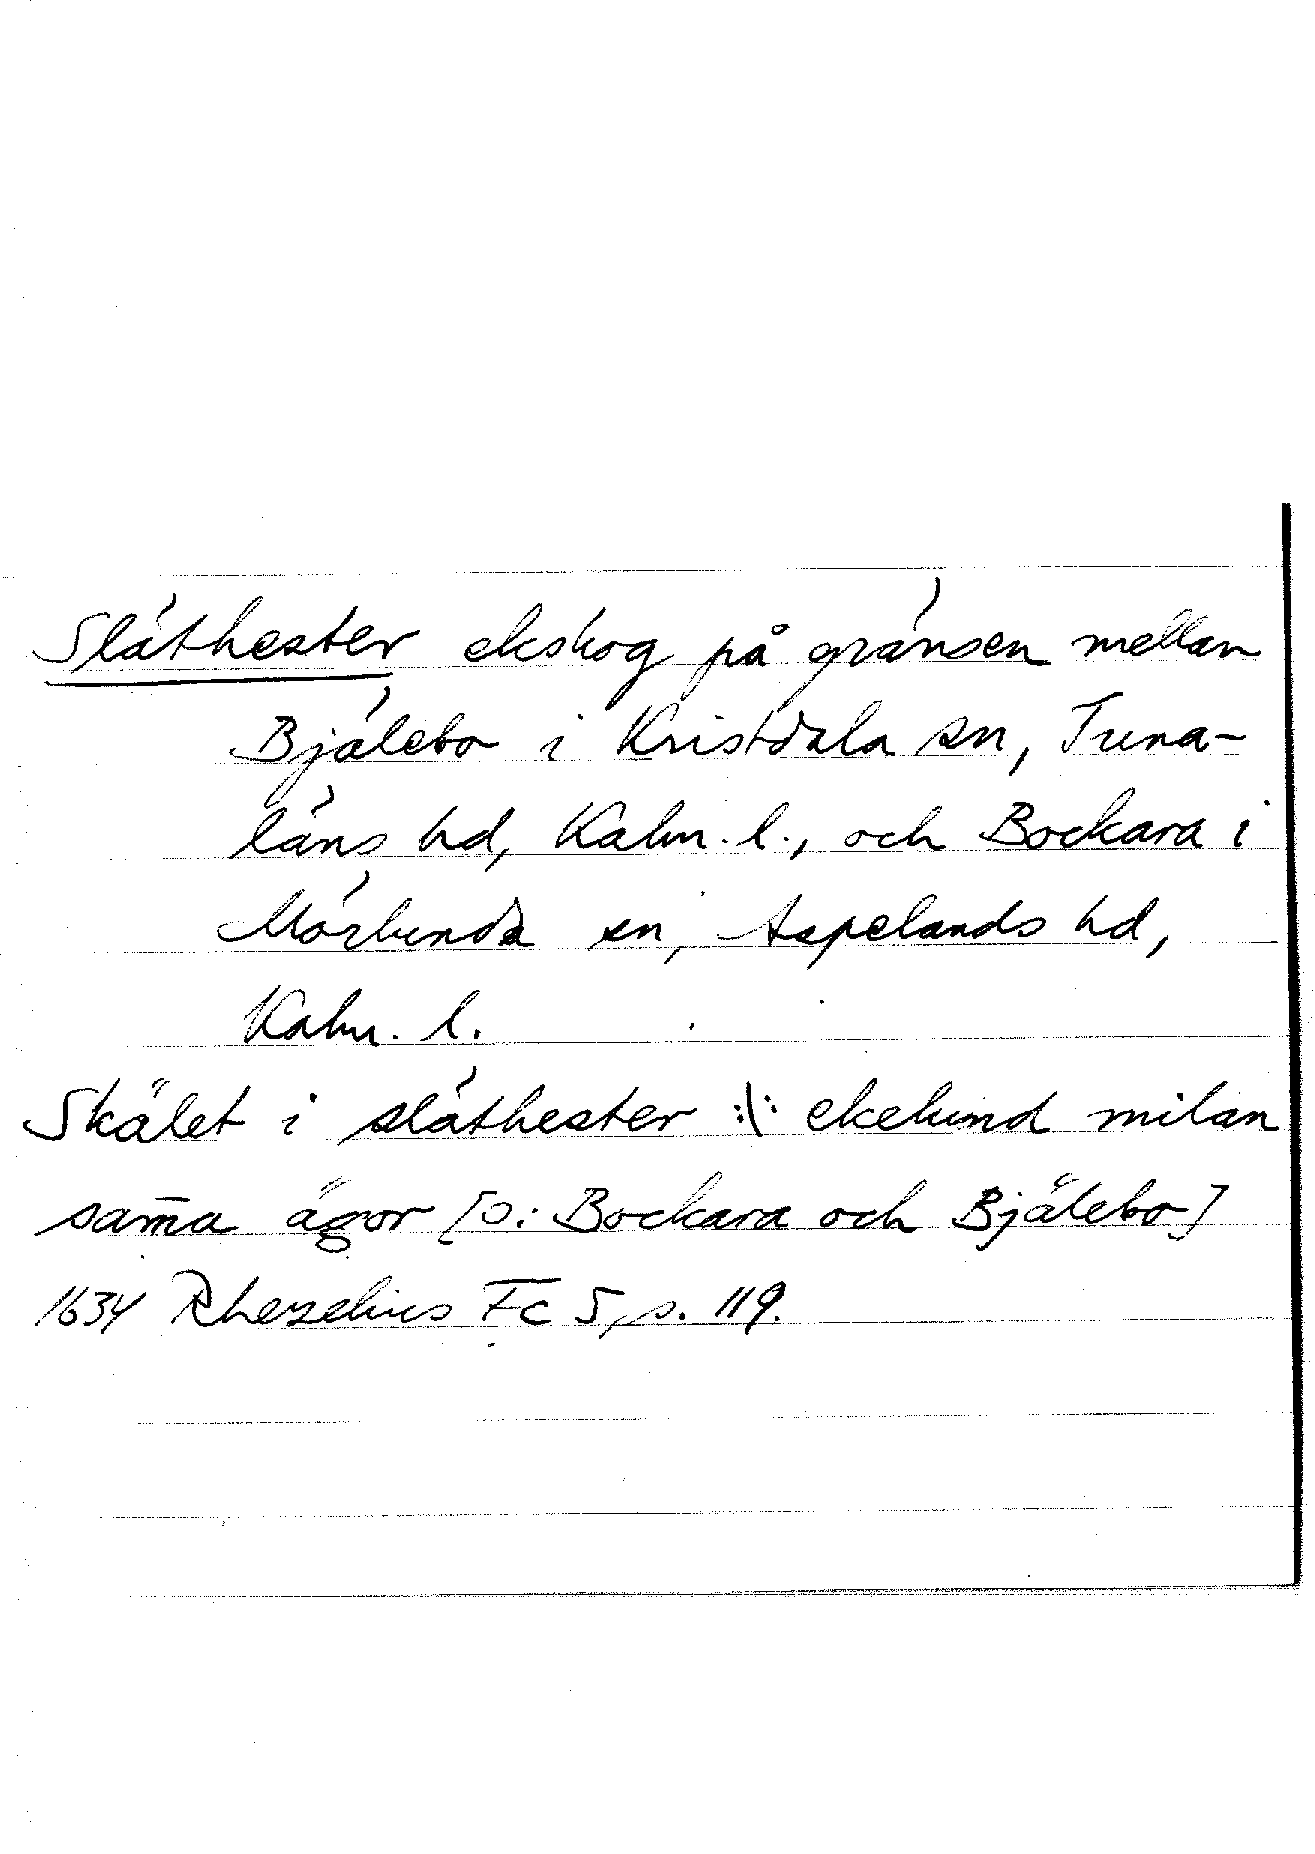 Släthester ekskog på gränsen mellan
Bjälebo i Kristdala sn, Tuna-
läns hd, Kalm. l., och Bockara i
Mörlunda sn, Aspelands hd,
Kalm. l.
Skälet i släthester :/: ekelund milan
sam̄a ägor [ɔ: Bockara och Bjälebo]
1634 Rhezelius Fc 5, s. 119.